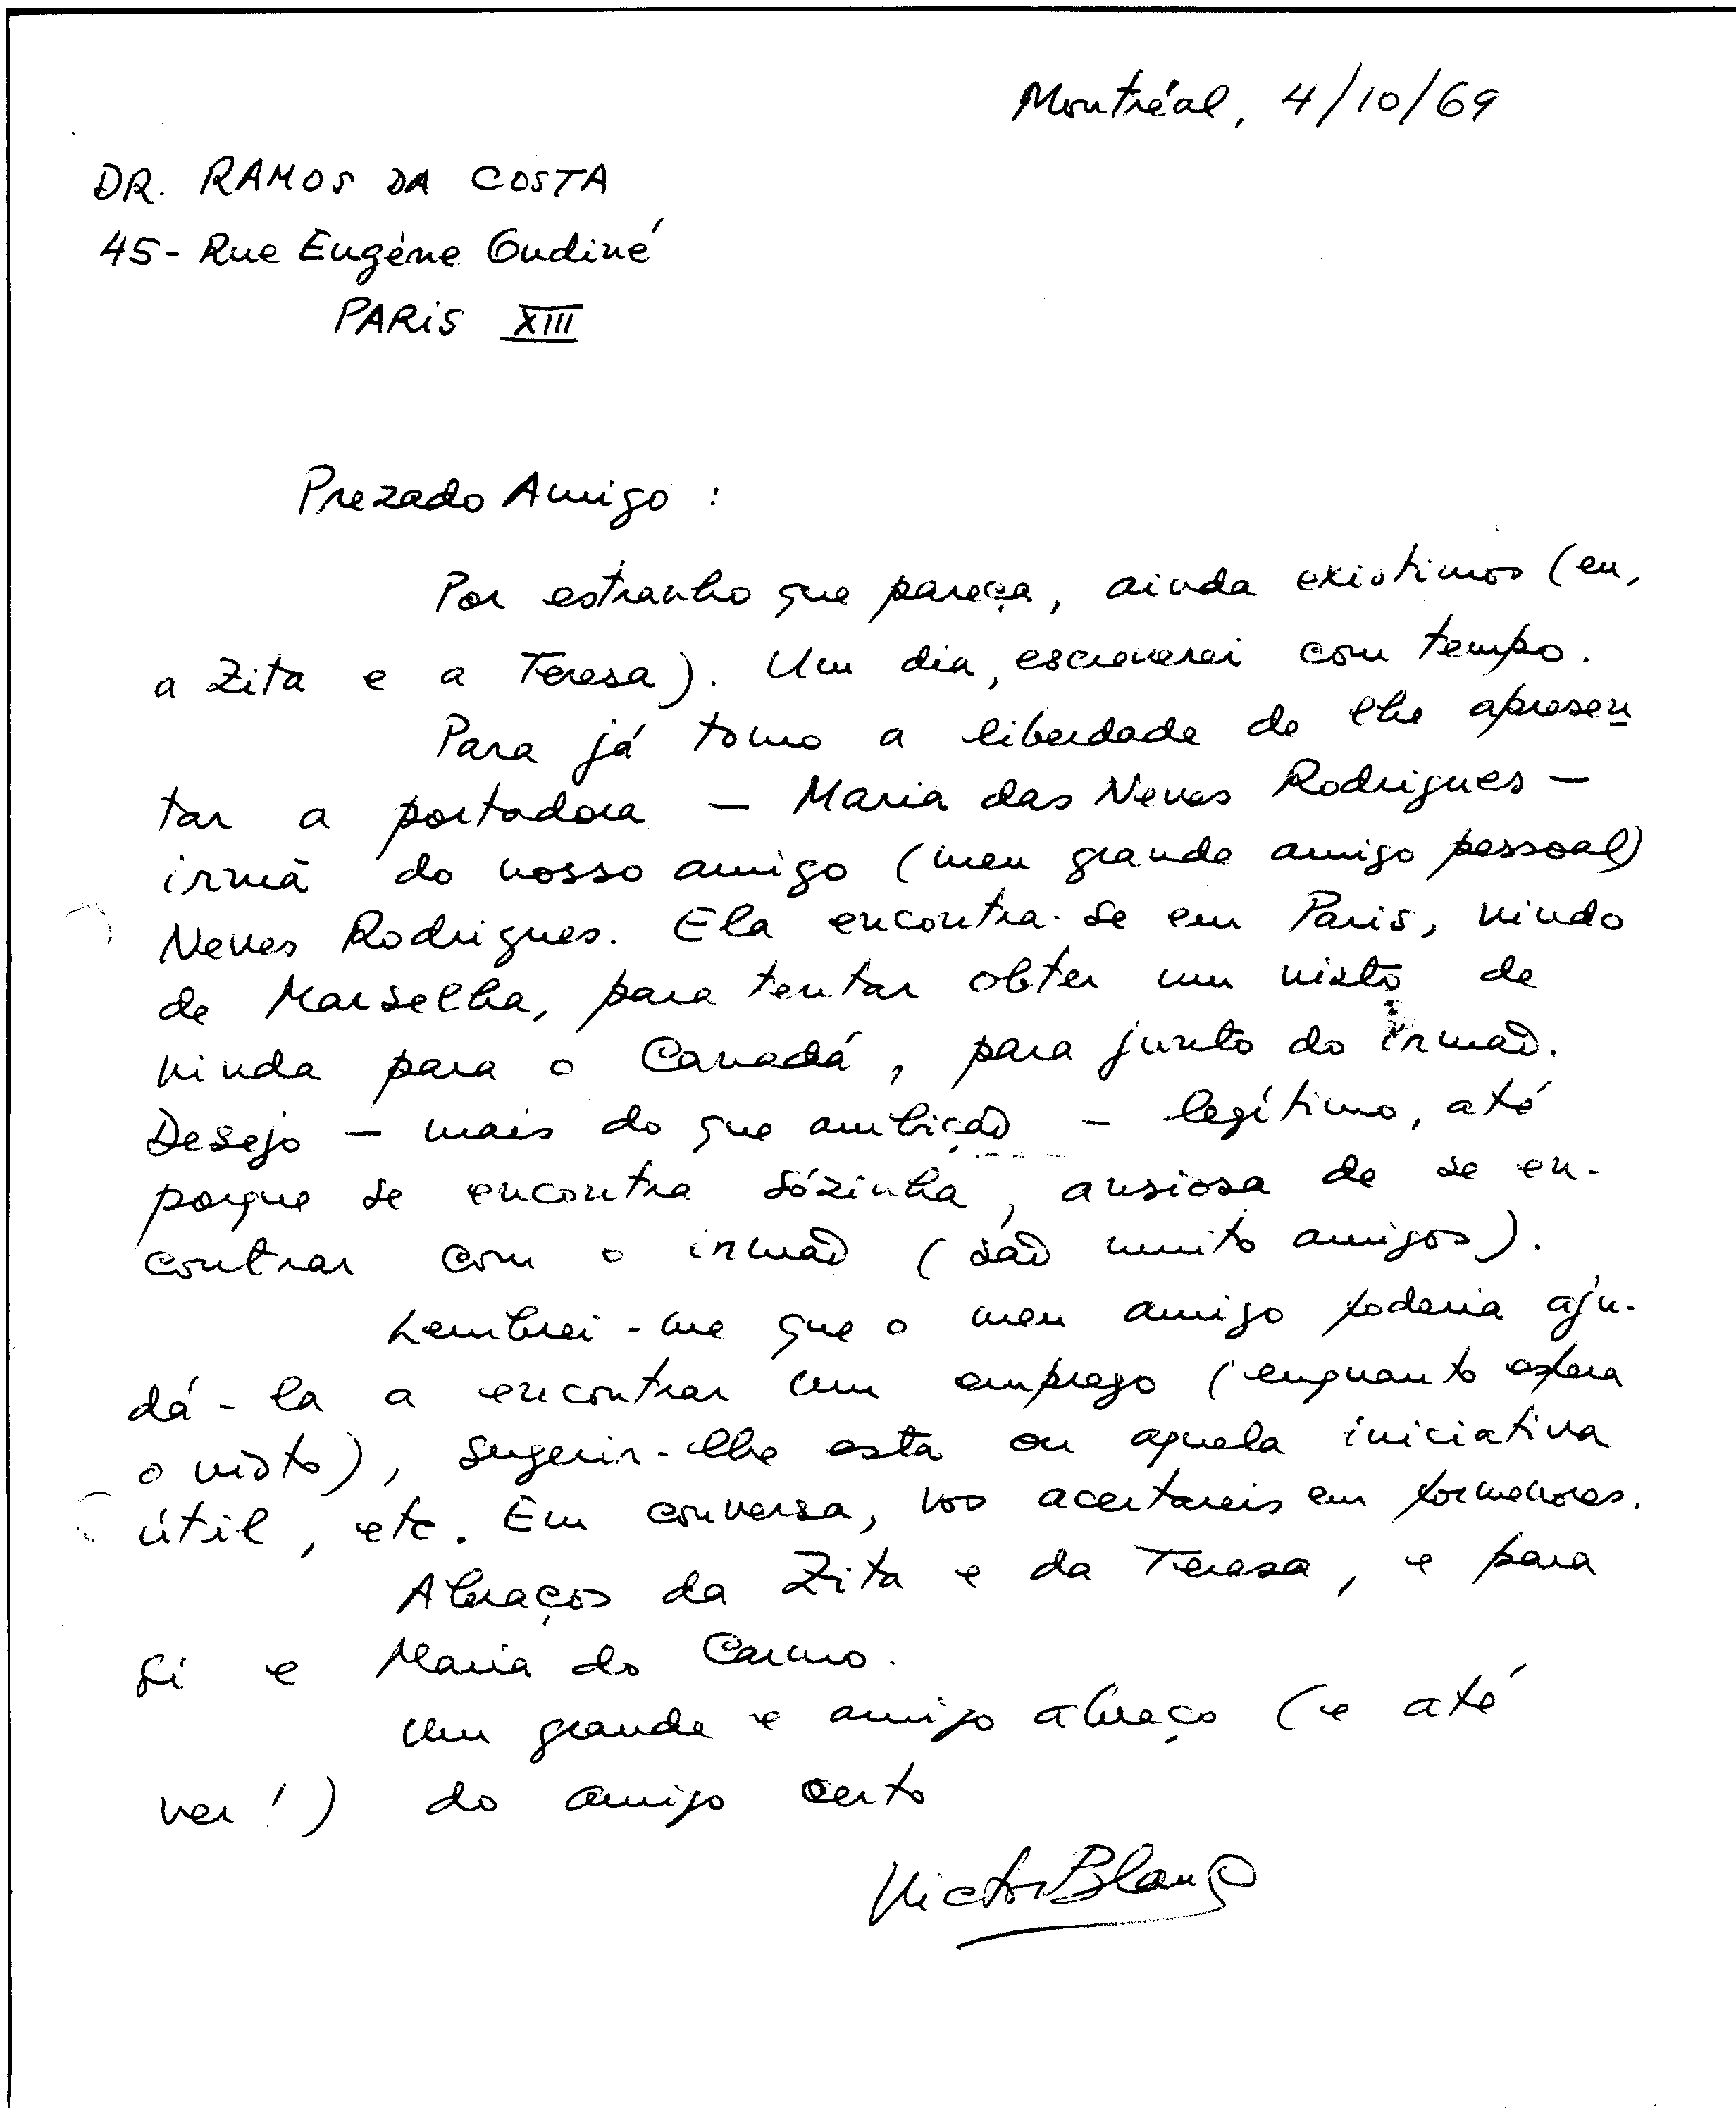 Montréal, 4/10/69
DR. RAMOS DA COSTA
45- Rue Eugène Oudiné
PARIS XIII
Prezado Amigo :
Por estranho que pareça, ainda existimos (eu,
a Zita e a Teresa). Um dia, escreverei com tempo.
Para já tomo a liberdade de lhe apresen
tar a portadora — Maria das Neves Rodrigues —
irmã do nosso amigo (meu grande amigo pessoal)
Neves Rodrigues. Ela encontra-se em Paris, vindo
de Marselha, para tentar obter um visto de
vinda para o Canadá, para junto do irmão.
Desejo — mais do que ambição — legítimo, até
porque se encontra sózinha, ansiosa de se en-
contrar com o irmão (são muito amigos).
Lembrei-me que o meu amigo poderia aju-
dá-la a encontrar um emprego (enquanto espera
o visto), sugerir-lhe esta ou aquela iniciativa
útil, etc. Em conversa, vos acertareis em pormenores.
Abraços da Zita e da Teresa, e para
si e Maria do Carmo.
Um grande e amigo abraço (e até
ver!) do amigo certo
Victor Blanco